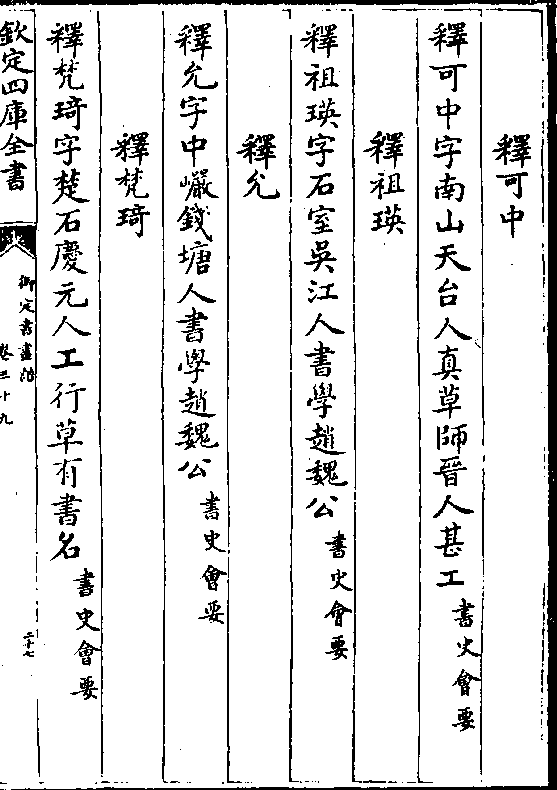 釋可中
釋可中字南山天台人真草師晉人甚工書史會要
釋祖瑛
釋祖瑛字石室吳江人書學趙魏公書史會要
釋允
釋允字中巘錢塘人書學趙魏公書史會要
釋梵琦
釋梵琦字楚石慶元人工行草有書名書史會要
欽定四庫全書
御定書畫譜
卷三十九
二十七